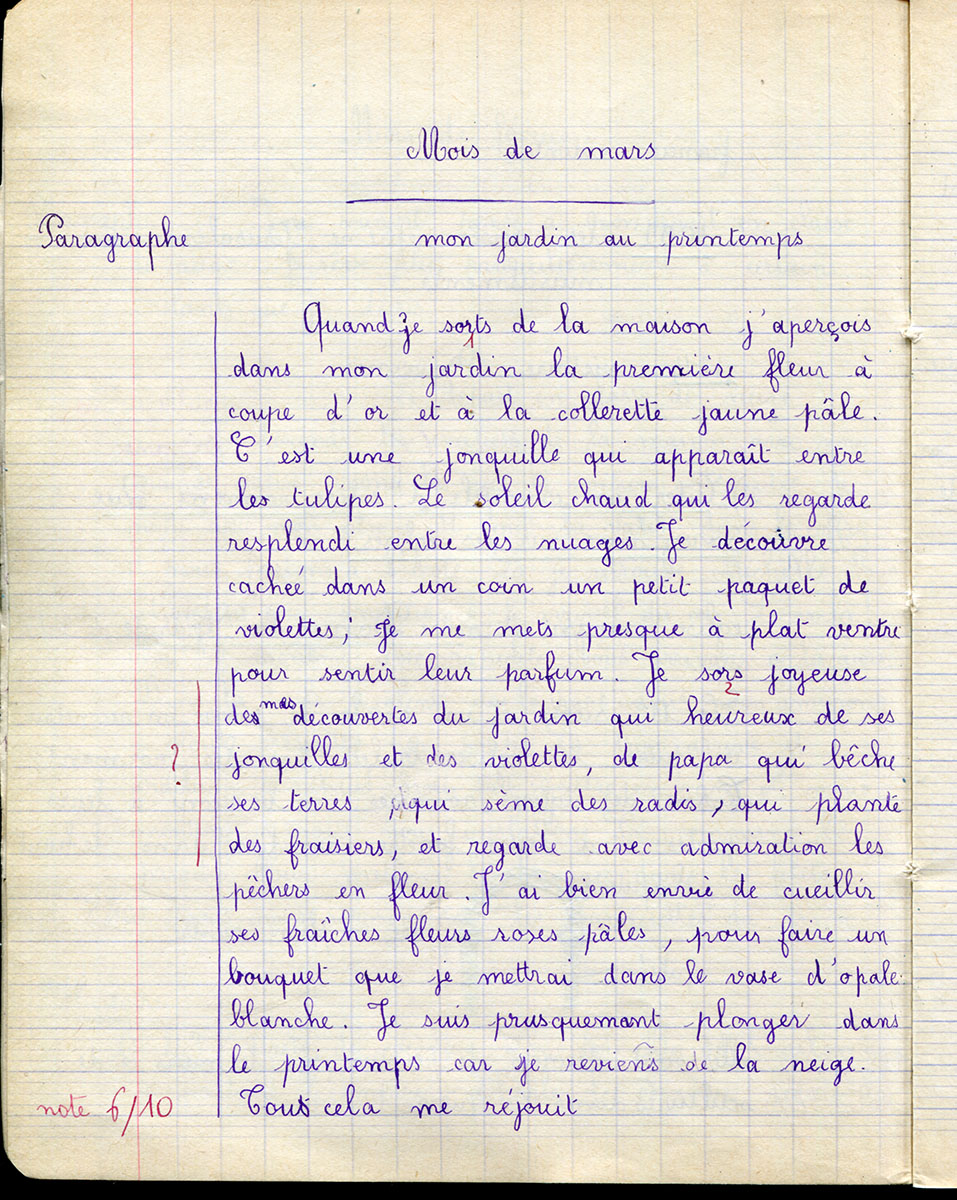 Mois de mars
Paragraphe mon jardin au printemps
Quand je sorts de la maison j'aperçois
1
dans mon jardin la première fleur à
coupe d'or et à la collerette jaune pâle.
C'est une jonquille qui apparaît entre
les tulipes. Le soleil chaud qui les regarde
resplendi entre les nuages. Je découvre
cacheé dans un coin un petit paquet de
violettes; Je me mets presque à plat ventre
pour sentir leur parfum. Je sors joyeuse
2
des mes découvertes du jardin qui heureux de ses
? jonquilles et des violettes, de papa qui bêche
ses terres, qui sème des radis, qui plante
des fraisiers, et regarde avec admiration les
pêchers en fleur. J'ai bien envie de cueillir
ses fraîches fleurs roses pâles, pour faire un
bouquet que je mettrai dans le vase d'opale
blanche. Je suis prusquemant plonger dans
le printemps car je reviens de la neige.
note 6/10 Tout cela me réjouit